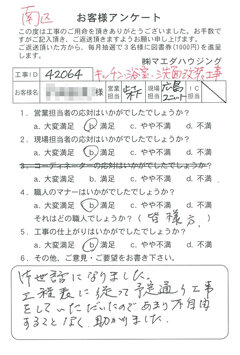 南区
お客様アンケート
この度は工事のご用命を頂きありがとうございます。お手数で
すがご記入頂き、ご返送頂きますようお願い申し上げます。
ご返送頂いた方から、毎月抽選で3名様に図書券(1000円)を進呈
します。
㈱マエダハウジング
工事ID 42064 キッチン・浴室・洗面改装工事
お客様名 様 営業担当 現場担当 広島ユニット IC
1. 営業担当者の応対はいかがでしたでしょうか?
a. 大変満足 b. 満足 c. やや不満 d. 不満
2. 現場担当者の応対はいかがでしたでしょうか?
a. 大変満足 b. 満足 c. やや不満 d. 不満
3. コーディネーターの応対はいかがでしたでしょうか?
a. 大変満足 b. 満足 c. やや不満 d. 不満
4. 職人のマナーはいかがでしたでしょうか?
a. 大変満足 b. 満足 c. やや不満 d. 不満
それはどの職人でしょうか?(皆様方)
5. 工事の仕上がりはいかがでしたでしょうか?
a. 大変満足 b. 満足 c. やや不満 d. 不満
6. その他、ご意見・ご要望をお書き下さい。
お世話になりました。
工程表に従って予定通り工事を
していただいたのであまり不自由
することなく助かりました。